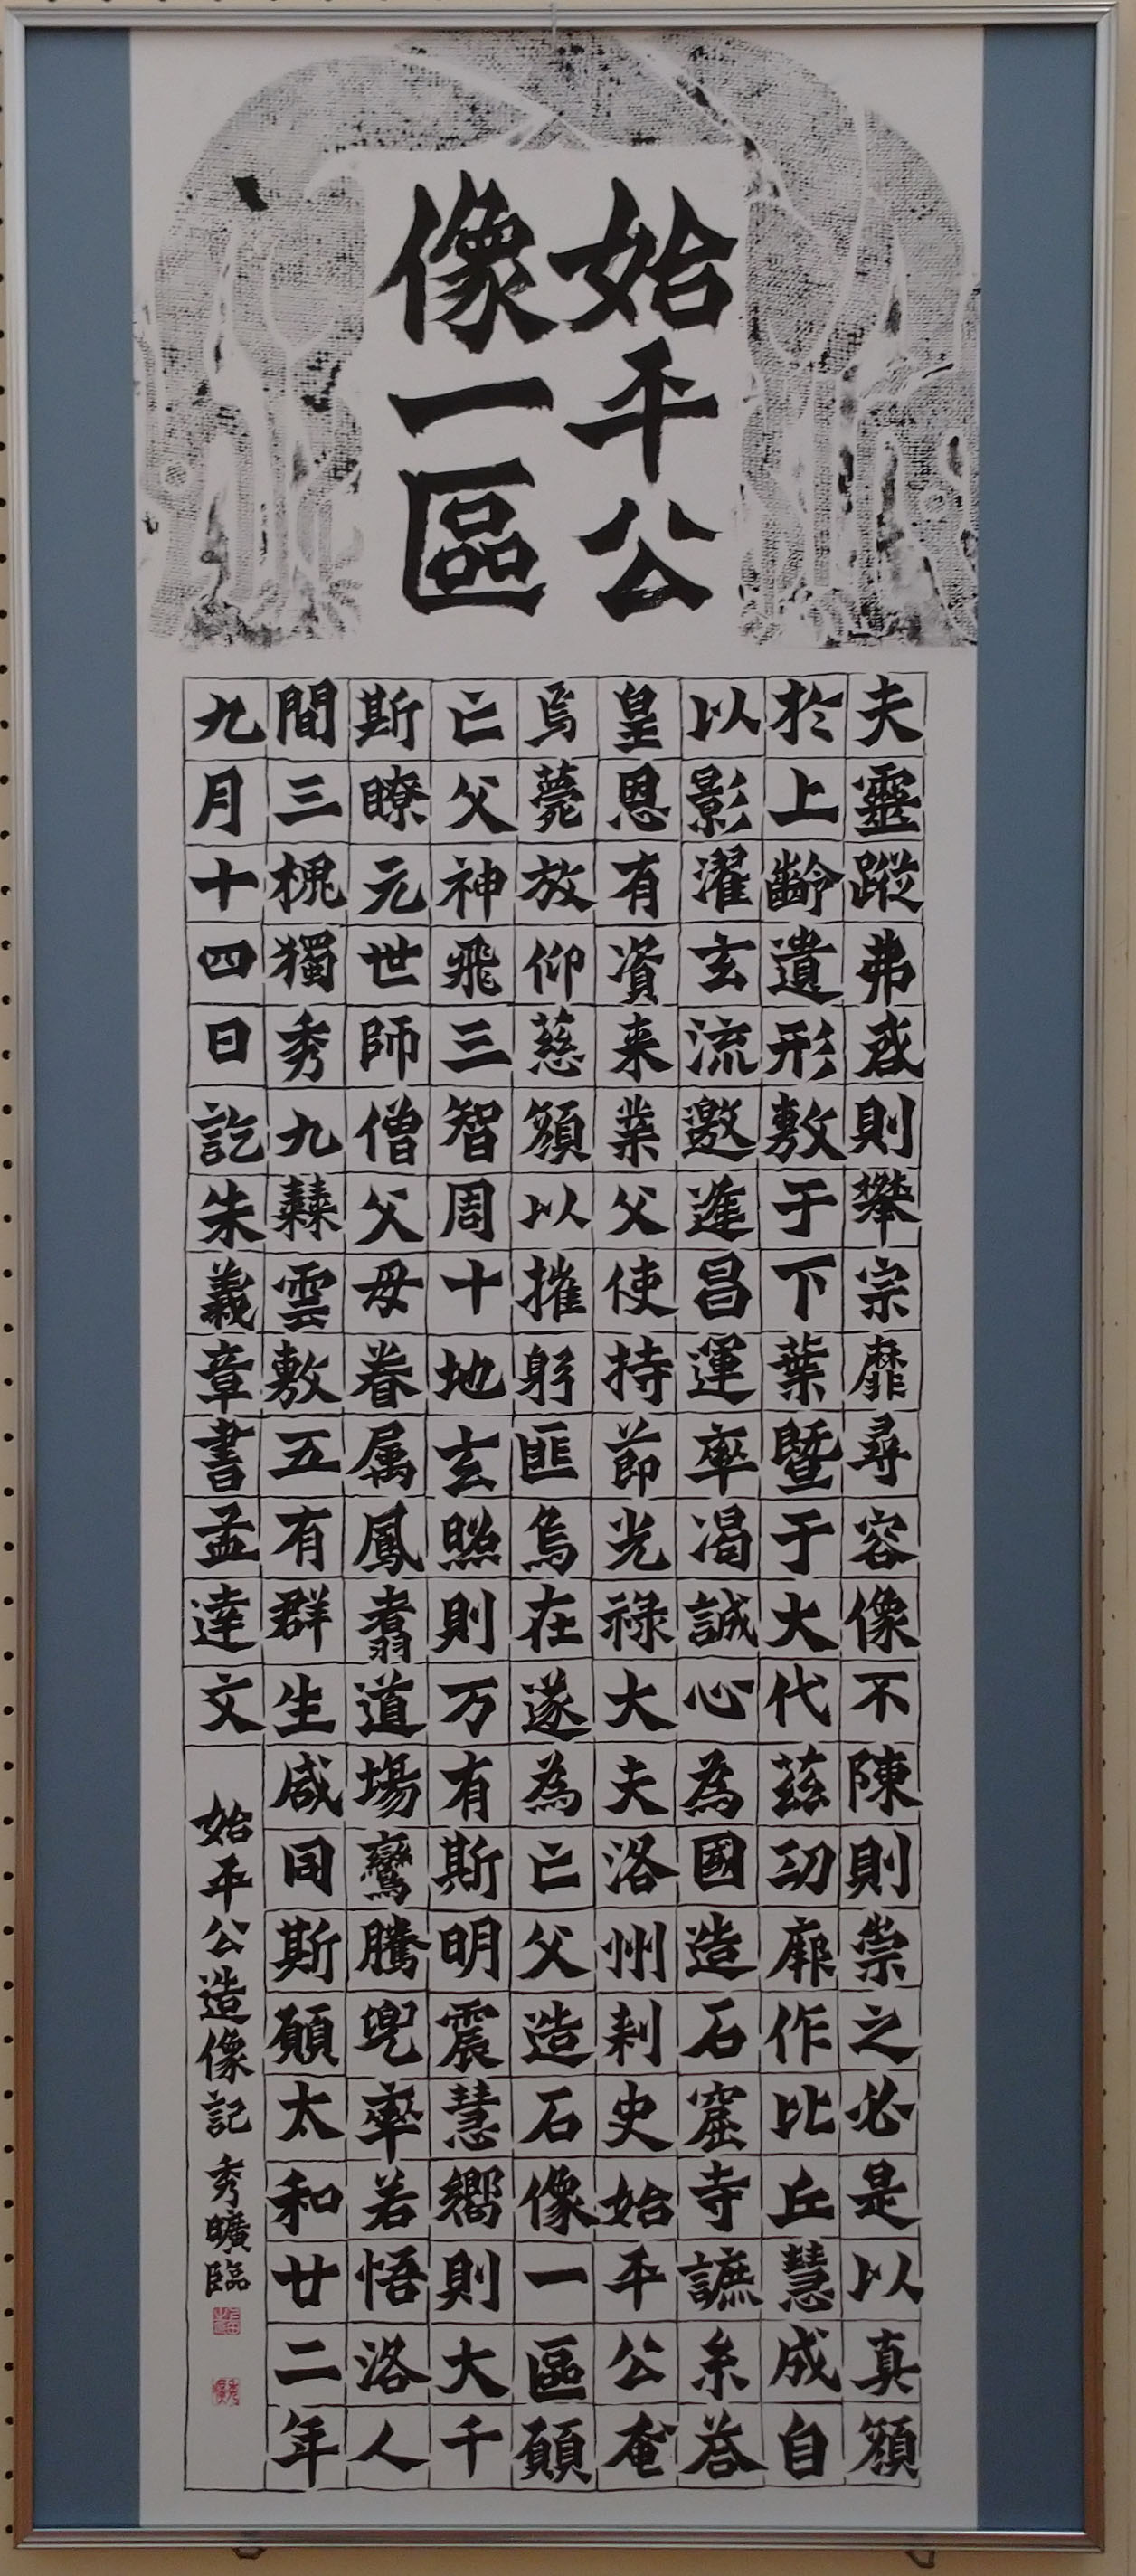 始平公
像一區
夫靈蹤弗惑則攀宗靡尋容像不陳則崇之必是以真顏
於上齡遺形敷于下葉暨于大代茲功廓作比丘慧成自
以影濯玄流邀逢昌運率渴誠心為國造石窟寺䜆系荅
皇恩有資来業父使持節光祿大夫洛州刺史始平公奄
焉薨放仰慈顏以摧躬匪烏在遂為亡父造石像一區願
亡父神飛三智周十地玄照則万有斯明震慧嚮則大千
斯瞭元世師僧父母眷属鳳翥道場鸞騰兜率若悟洛人
間三槐獨秀九蕀雲敷五有群生咸同斯願太和廿二年
九月十四日訖朱義章書孟達文
始平公造像記 秀曠臨